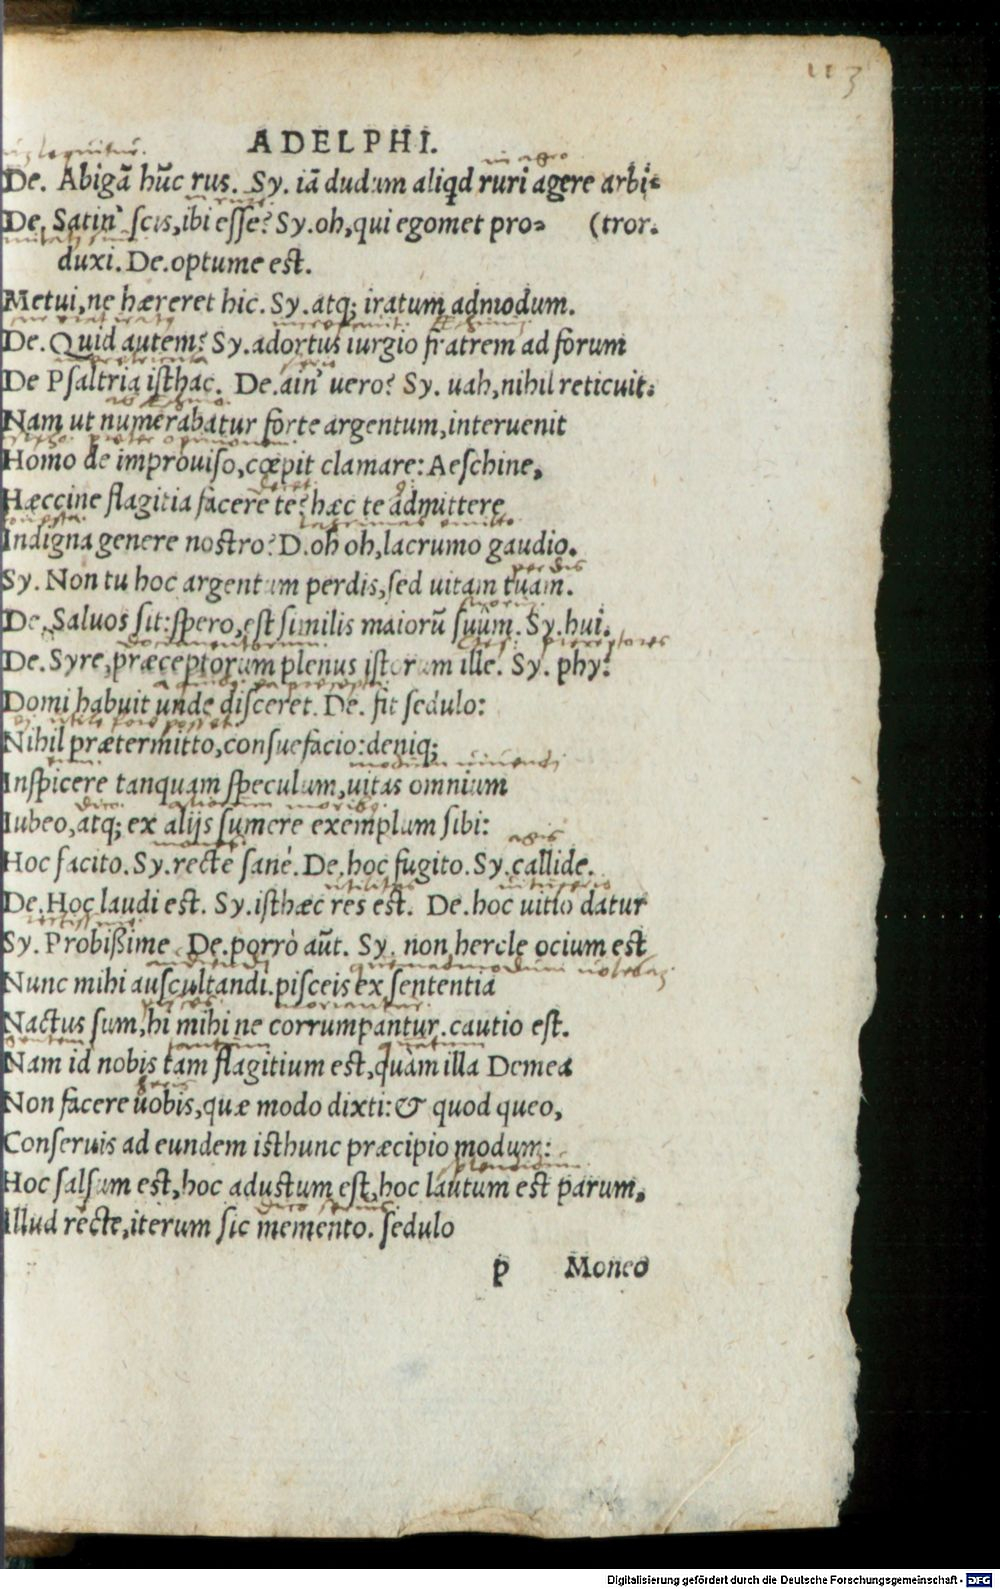 113
ADELPHI.
in agro
De. Abigā hūc rus. Sy. iā dudum aliqd ruri agere arbi-
De. Satin' scis, ibi esse? Sy. oh, qui egomet pro- (tror.
duxi. De. optume est.
Metui, ne hæreret hic. Sy. atq; iratum admodum.
De. Quid autem? Sy. adortus iurgio fratrem ad forum
De Psaltria isthac. De. ain' uero? Sy. uah, nihil reticuit.
Nam ut numerabatur forte argentum, interuenit
Homo de improuiso, cœpit clamare: Aeschine,
Hæccine flagitia facere te? hæc te admittere
lacrimas
Indigna genere nostro? D. oh oh, lacrumo gaudio.
perdis
Sy. Non tu hoc argentum perdis, sed uitam tuam.
De. Saluos sit: spero, est similis maiorū suūm. Sy. hui.
De. Syre, præceptorum plenus istorum ille. Sy. phy:
Domi habuit unde disceret. De. fit sedulo:
Nihil prætermitto, consuefacio: deniq;
modum uiuendi
Inspicere tanquam speculum, uitas omnium
Iubeo, atq; ex alijs sumere exemplum sibi:
agis
Hoc facito. Sy. recte sanè. De. hoc fugito. Sy. callide.
utilitas
De. Hoc laudi est. Sy. isthæc res est. De. hoc uitio datur
Sy. Probißime De. porrò aūt. Sy. non hercle ocium est
Nunc mihi auscultandi. pisceis ex sententia
Nactus sum, hi mihi ne corrumpantur. cautio est.
tantum
Nam id nobis tam flagitium est, quàm illa Demea
Non facere uobis, quæ modo dixti: & quod queo,
Conseruis ad eundem isthunc præcipio modum:
Hoc salsum est, hoc adustum est, hoc lautum est parum,
Illud recte, iterum sic memento. sedulo
p Moneo
Digitalisierung gefördert durch die Deutsche Forschungsgemeinschaft - DFG